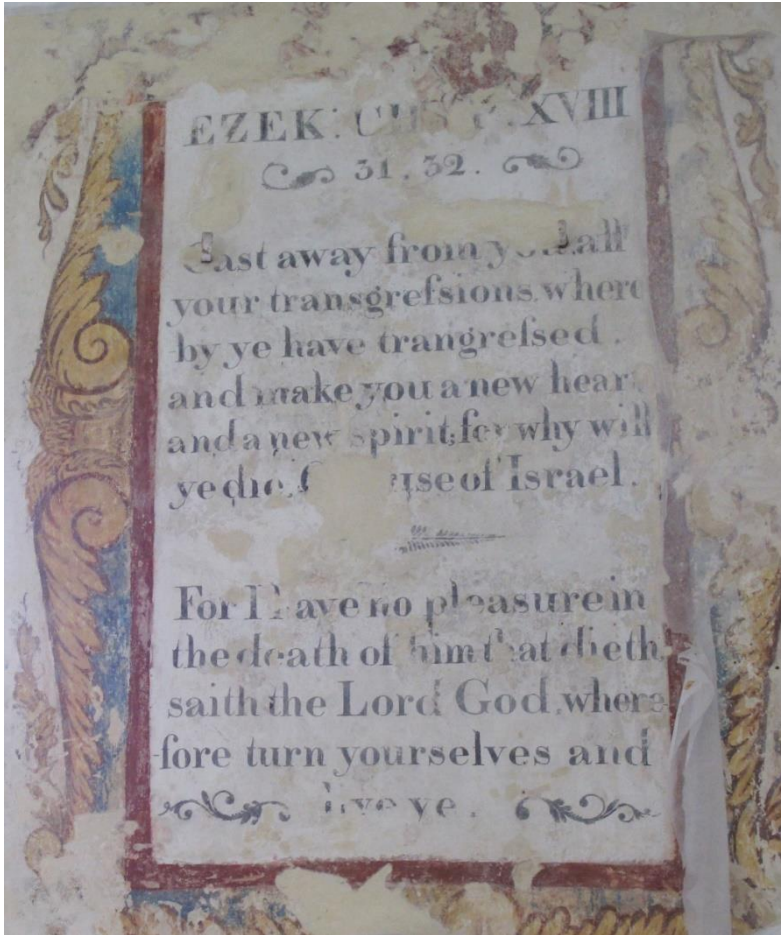 EZEK: CHAP. XVIII
31. 32.
Cast away from you all
your tranſgreſsions where
by ye have trangreſsed.
and make you a new heart
and a new spirit, for why will
ye die, use of Israel.
For I have no pleasure in
the death of him that dieth
saith the Lord God, where
fore turn yourselves and
live ye.